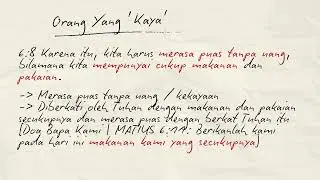 Orang Yang 'Kaya'
6:8 Karena itu, kita harus merasa puas tanpa uang,
bilamana kita mempunyai cukup makanan dan
pakaian.
-> Merasa puas tanpa uang / kekayaan
-> Diberkati oleh Tuhan dengan makanan dan pakaian
secukupnya dan merasa puas dengan berkat Tuhan itu
[Doa Bapa Kami | MATIUS 6:11: Berikanlah kami
pada hari ini makanan kami yang secukupnya]